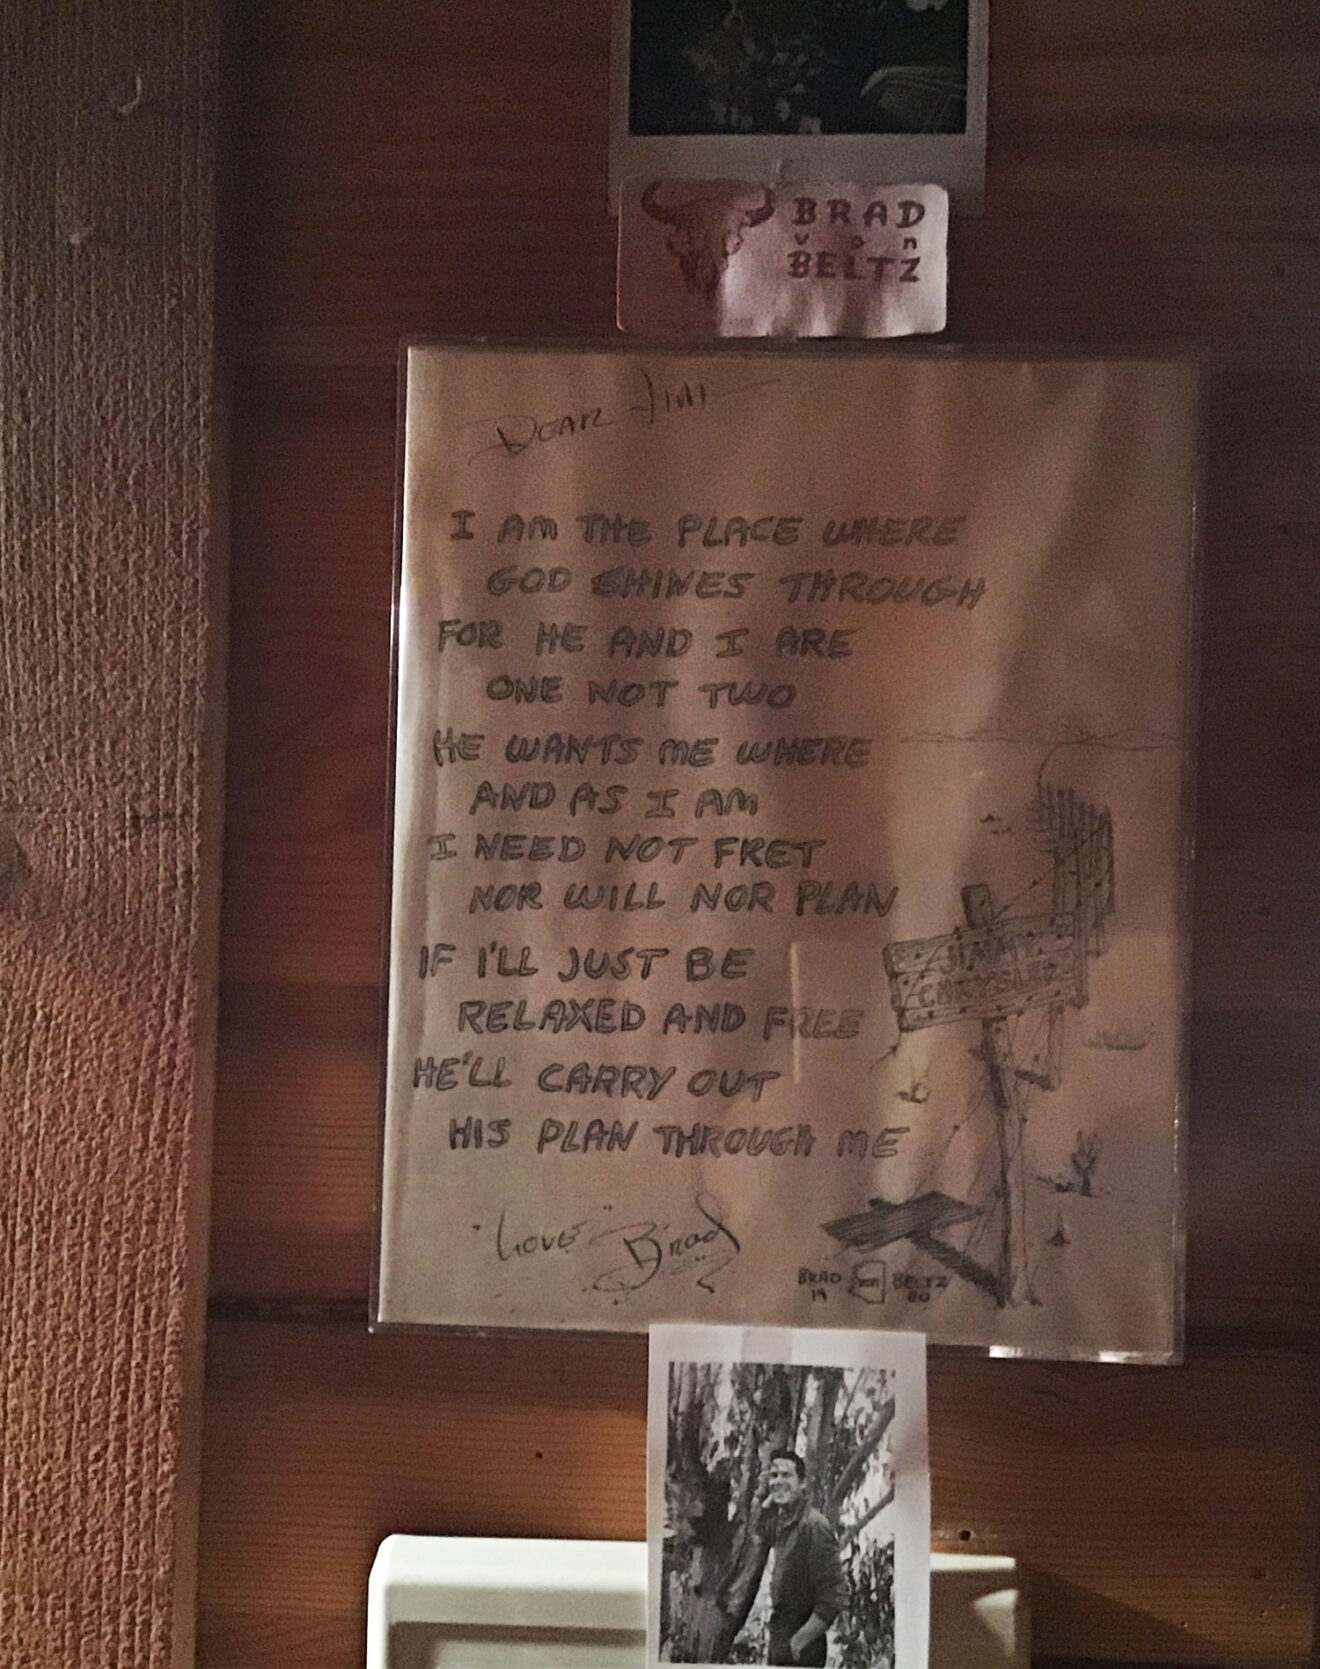 BRAD
von
BELTZ
DEAR JIM
I AM THE PLACE WHERE
GOD SHINES THROUGH
FOR HE AND I ARE
ONE NOT TWO
HE WANTS ME WHERE
AND AS I AM
I NEED NOT FRET
NOR WILL NOR PLAN
IF I'LL JUST BE
RELAXED AND FREE
HE'LL CARRY OUT
HIS PLAN THROUGH ME
JIMMY
CHRYSLER
"LOVE" Brad
BRAD VON BELTZ
19 80